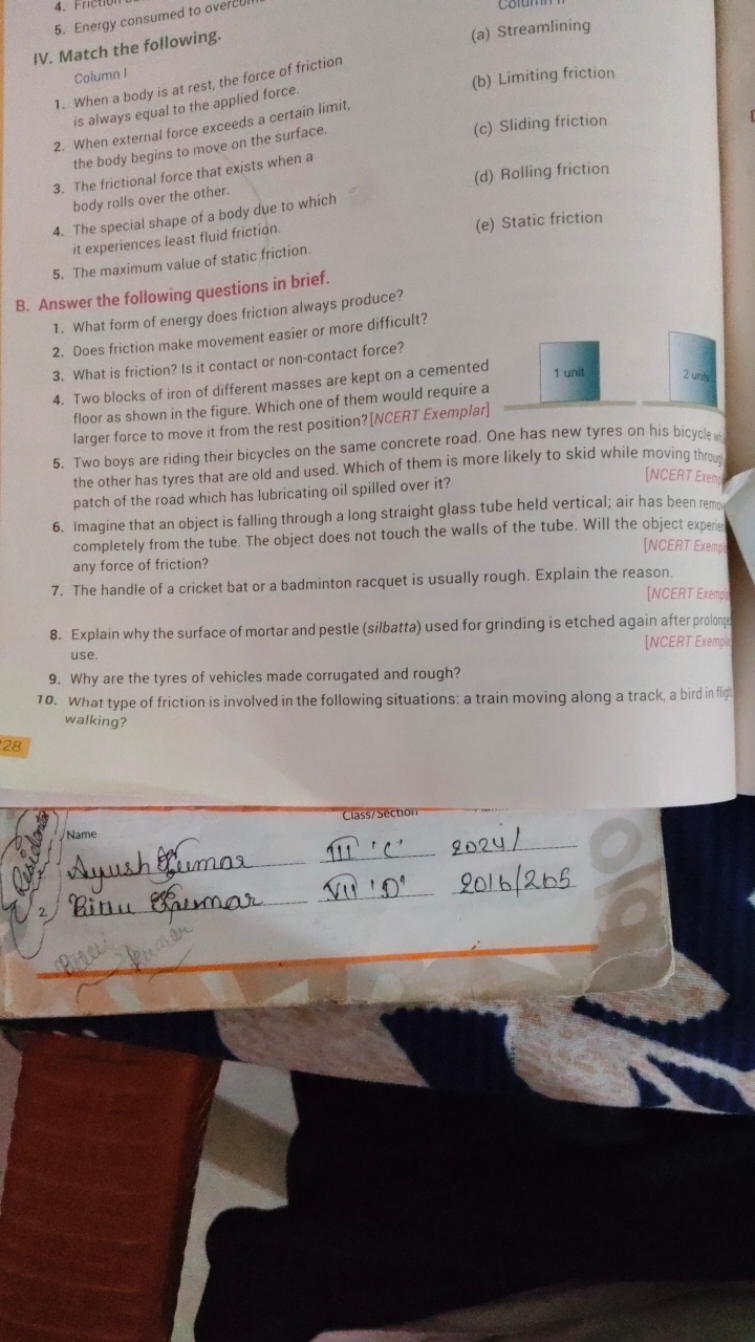 4.
5. Energy consumed to
IV. Match the following.
Column I
1. When a body is at rest, the force of friction
is always equal to the applied force.
2. When external force exceeds a certain limit,
the body begins to move on the surface.
3. The frictional force that exists when a
body rolls over the other.
4. The special shape of a body due to which
it experiences least fluid friction.
5. The maximum value of static friction.
(a) Streamlining
(b) Limiting friction
(c) Sliding friction
(d) Rolling friction
(e) Static friction
B. Answer the following questions in brief.
1. What form of energy does friction always produce?
2. Does friction make movement easier or more difficult?
3. What is friction? Is it contact or non-contact force?
4. Two blocks of iron of different masses are kept on a cemented
floor as shown in the figure. Which one of them would require a
larger force to move it from the rest position? [NCERT Exemplar]
1 unit
2
5. Two boys are riding their bicycles on the same concrete road. One has new tyres on his bicycle
the other has tyres that are old and used. Which of them is more likely to skid while moving
patch of the road which has lubricating oil spilled over it?
[NCERT
6. Imagine that an object is falling through a long straight glass tube held vertical; air has been
completely from the tube. The object does not touch the walls of the tube. Will the object
any force of friction?
[NCERT
7. The handle of a cricket bat or a badminton racquet is usually rough. Explain the reason.
[NCERT
8. Explain why the surface of mortar and pestle (silbatta) used for grinding is etched again after
use.
[NCERT
9. Why are the tyres of vehicles made corrugated and rough?
10. What type of friction is involved in the following situations: a train moving along a track, a bird in
walking?
28
Class/Section
Name
Ayush Kumar III 'C' 2024/
2 Bittu Kumar VII 'D' 2016/265
Kumar